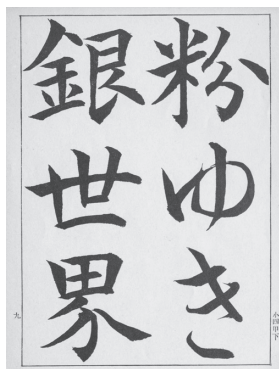 粉ゆき
銀世界
小四甲下
九